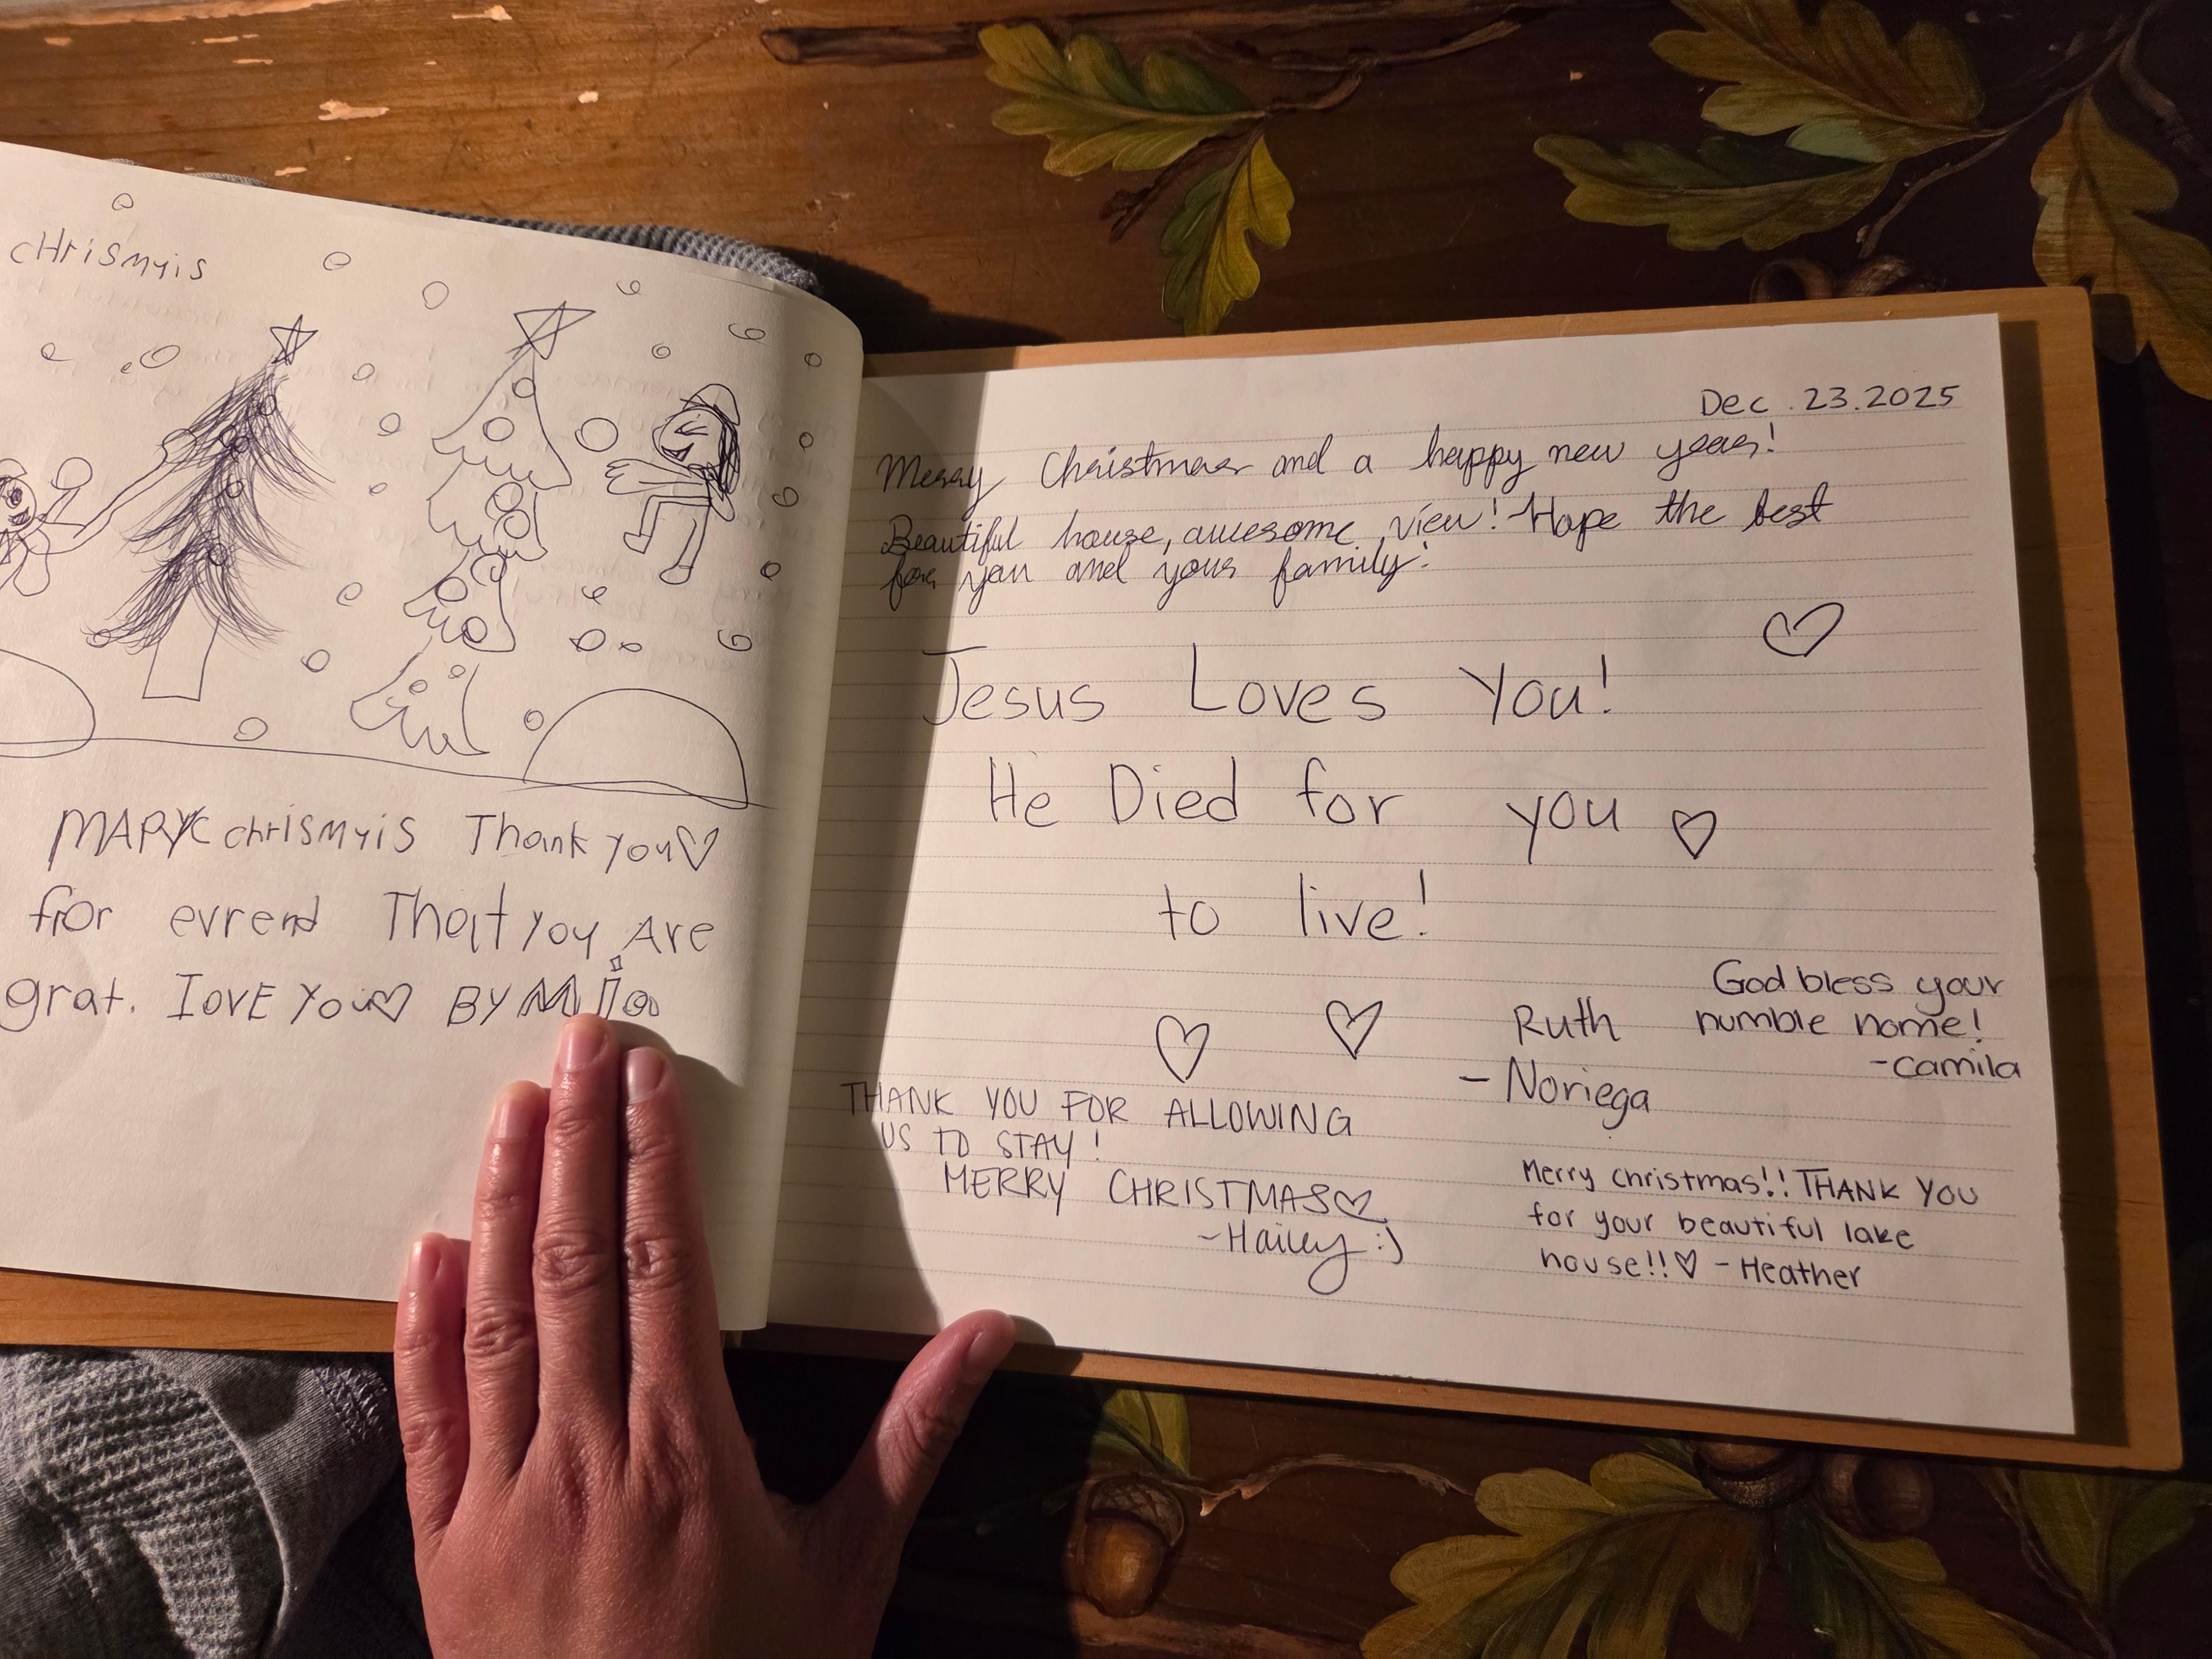 cHrismyis
MARYC chrismyis Thank you♡
for evrend That you Are
grat. IovE You♡ BY Mia
Dec .23.2025
Merry Christmas and a happy new year!
Beautiful house, awesome view! Hope the best
for you and your family!
Jesus Loves You! ♡
He Died for you ♡
to live!
♡ ♡
Ruth
- Noriega
God bless your
humble home!
-Camila
THANK YOU FOR ALLOWING
US TO STAY!
MERRY CHRISTMAS♡
~Hailey :)
Merry christmas!! THANK YOU
for your beautiful lake
house!!♡ - Heather